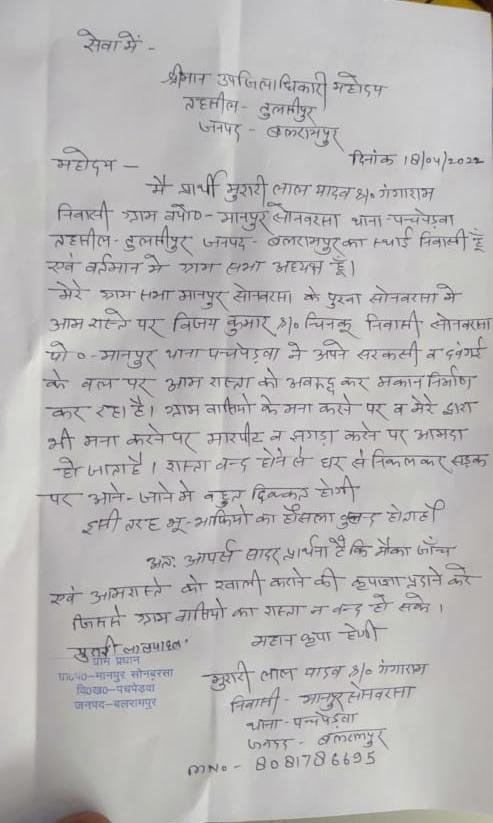 सेवा में -
श्रीमान उपजिलाधिकारी महोदय
तहसील - तुलसीपुर
जनपद - बलरामपुर
दिनांक 18/04/2022
महोदय -
मै प्रार्थी मुरारी लाल यादव S/o गंगाराम
निवासी ग्राम व पो0 - मानपुर सोनबरसा थाना - पचपेड़वा
तहसील - तुलसीपुर जनपद - बलरामपुर का स्थाई निवासी हूँ
एवं वर्तमान मे ग्राम सभा अध्यक्ष हूँ।
मेरे ग्राम सभा मानपुर सोनबरसा के पुरवा सोनबरसा मे
आम रास्ते पर विजय कुमार S/o चिनकू निवासी सोनबरसा
पो0 - मानपुर थाना पचपेड़वा ने अपने सरकसी व दबंगई
के बल पर आम रास्ता को अवरुद्ध कर मकान निर्माण
कर रहा है। ग्राम वासियो के मना करने पर व मेरे द्वारा
भी मना करने पर मारपीट व झगड़ा करने पर आमदा
हो जाता है। रास्ता बन्द होने से घर से निकल कर सड़क
पर आने - जाने मे बहुत दिक्कत होगी
इसी तरह भू - माफियो का हौसला बुलन्द हो
अतः आपसे सादर प्रार्थना है कि मौका जाँच
एवं आम रास्ते को खाली कराने की कृपा करे
जिससे ग्राम वासियो का रास्ता न बन्द हो सके।
महान कृपा होगी
मुरारी लाल यादव
ग्राम प्रधान
ग्रा0प0-मानपुर सोनबरसा
वि0ख0-पचपेड़वा
जनपद-बलरामपुर
मुरारी लाल यादव S/o गंगाराम
निवासी - मानपुर सोनबरसा
थाना - पचपेड़वा
जनपद - बलरामपुर
MNo. - 8081786695